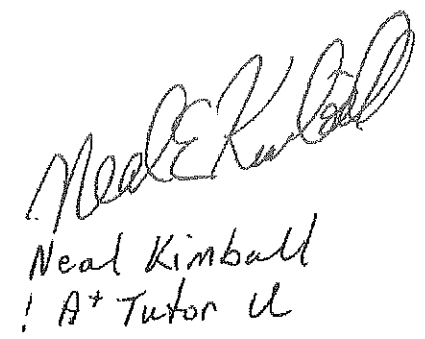 Neal E Kimball
Neal Kimball
! A+ Tutor U